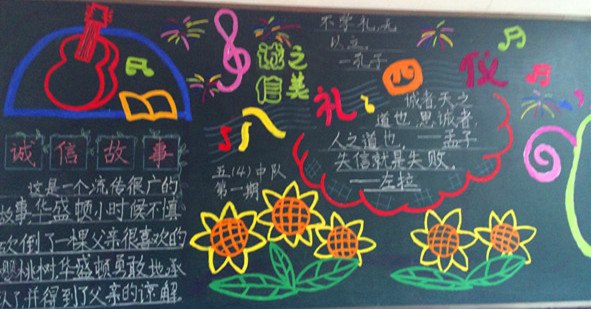 诚信之美
不学礼,无
以立。
—孔子
礼仪
四
诚者,天之
道也,思诚者
人之道也,—孟子
失信就是失败。
—左拉
五(4)中队
第一期
诚信故事
这是一个流传很广的
故事华盛顿小时候不慎
砍倒了一棵父亲很喜欢的
樱桃树华盛顿勇敢地承
认了,并得到了父亲的谅解.